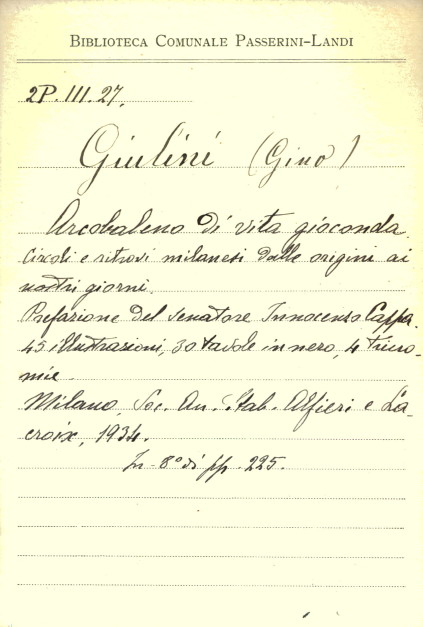 BIBLIOTECA COMUNALE PASSERINI-LANDI
2P. III. 27.
Giulini (Gino)
Arcobaleno di vita gioconda.
Circoli e ritrovi milanesi dalle origini ai
nostri giorni.
Prefazione del senatore Innocenzo Cappa.
45 illustrazioni, 30 tavole in nero, 4 tricro-
mie.
Milano, Soc. An. Stab. Alfieri e La-
croix, 1934.
In-8° di pp. 225.